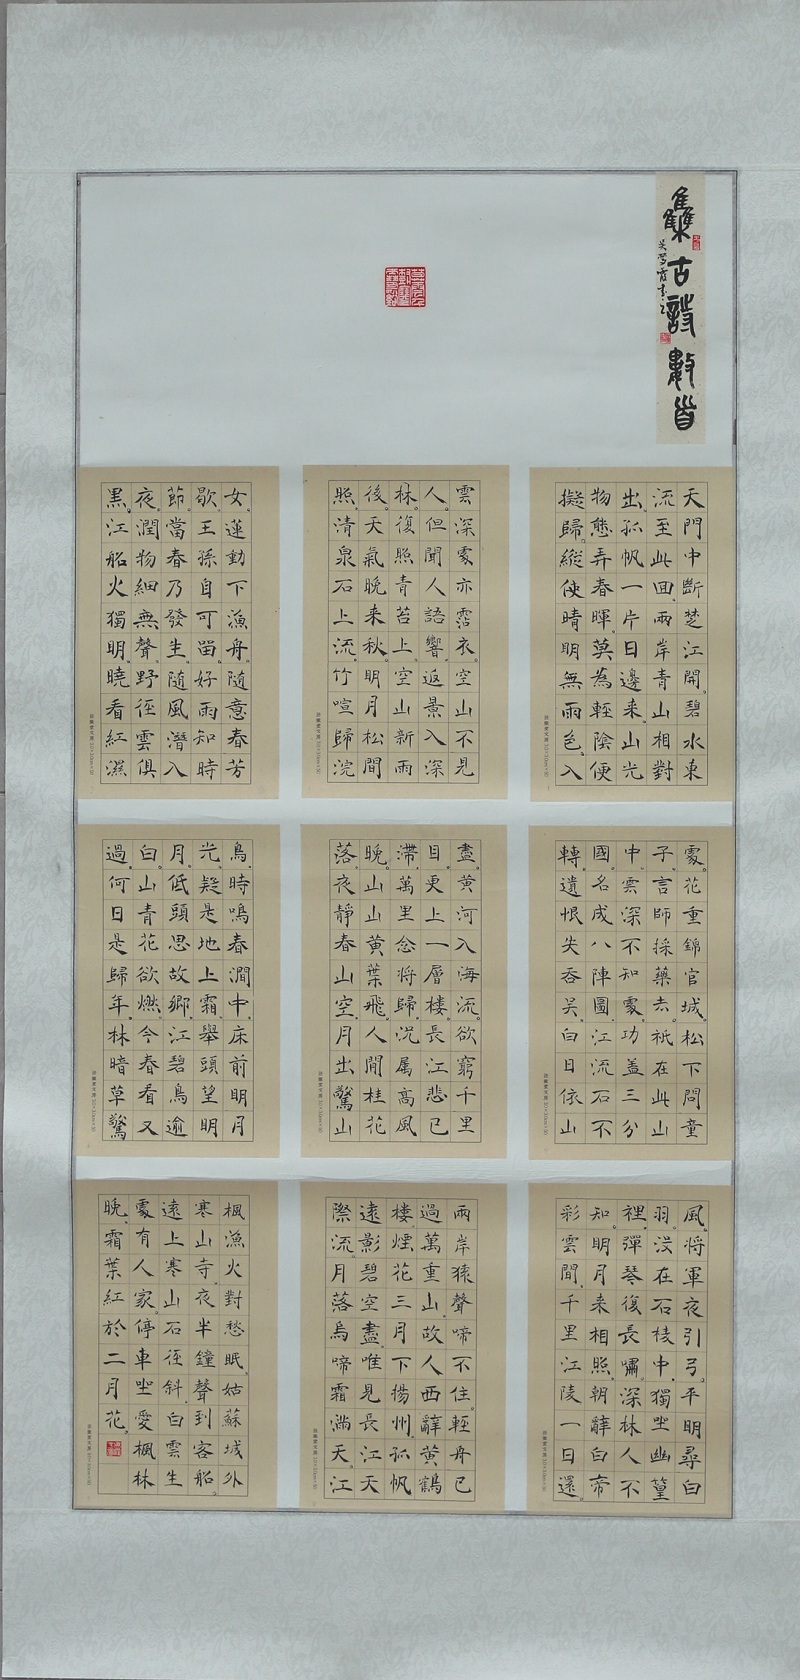 雧古詩數首
天門中斷楚江開。碧水東
流至此回。兩岸青山相對
出。孤帆一片日邊来。山光
物態弄春暉。莫為輕陰便
擬歸。縱使晴明無雨色。入
雲深處亦霑衣。空山不見
人。但聞人語響。返景入深
林。復照青苔上。空山新雨
後。天氣晚来秋。明月松間
照。清泉石上流。竹喧歸浣
女。蓮動下漁舟。隨意春芳
歇。王孫自可留。好雨知時
節。當春乃發生。随風潛入
夜。潤物細無聲。野徑雲俱
黑。江船火獨明。曉看紅濕
處。花重錦官城。松下問童
子。言師採藥去。祇在此山
中。雲深不知處。功蓋三分
國。名成八陣圖。江流石不
轉。遺恨失吞吴。白日依山
盡。黄河入海流。欲窮千里
目。更上一層樓。長江悲已
滯。萬里念將歸。況属高風
晚。山山黄葉飛。人閒桂花
落。夜靜春山空。月出驚山
鳥。時鳴春澗中。床前明月
光。疑是地上霜。舉頭望明
月。低頭思故鄉。江碧鳥逾
白。山青花欲燃。今春看又
過。何日是歸年。林暗草驚
風。将軍夜引弓。平明尋白
羽。没在石棱中。獨坐幽篁
裡。彈琴復長嘯。深林人不
知。明月来相照。朝辭白帝
彩雲間。千里江陵一日還。
兩岸猿聲啼不住。輕舟已
過萬重山。故人西辭黄鶴
樓。煙花三月下揚州。孤帆
遠影碧空盡。唯見長江天
際流。月落烏啼霜滿天。江
楓漁火對愁眠。姑蘇城外
寒山寺。夜半鐘聲到客船。
遠上寒山石徑斜。白雲生
處有人家。停車坐愛楓林
晚。霜葉紅於二月花。